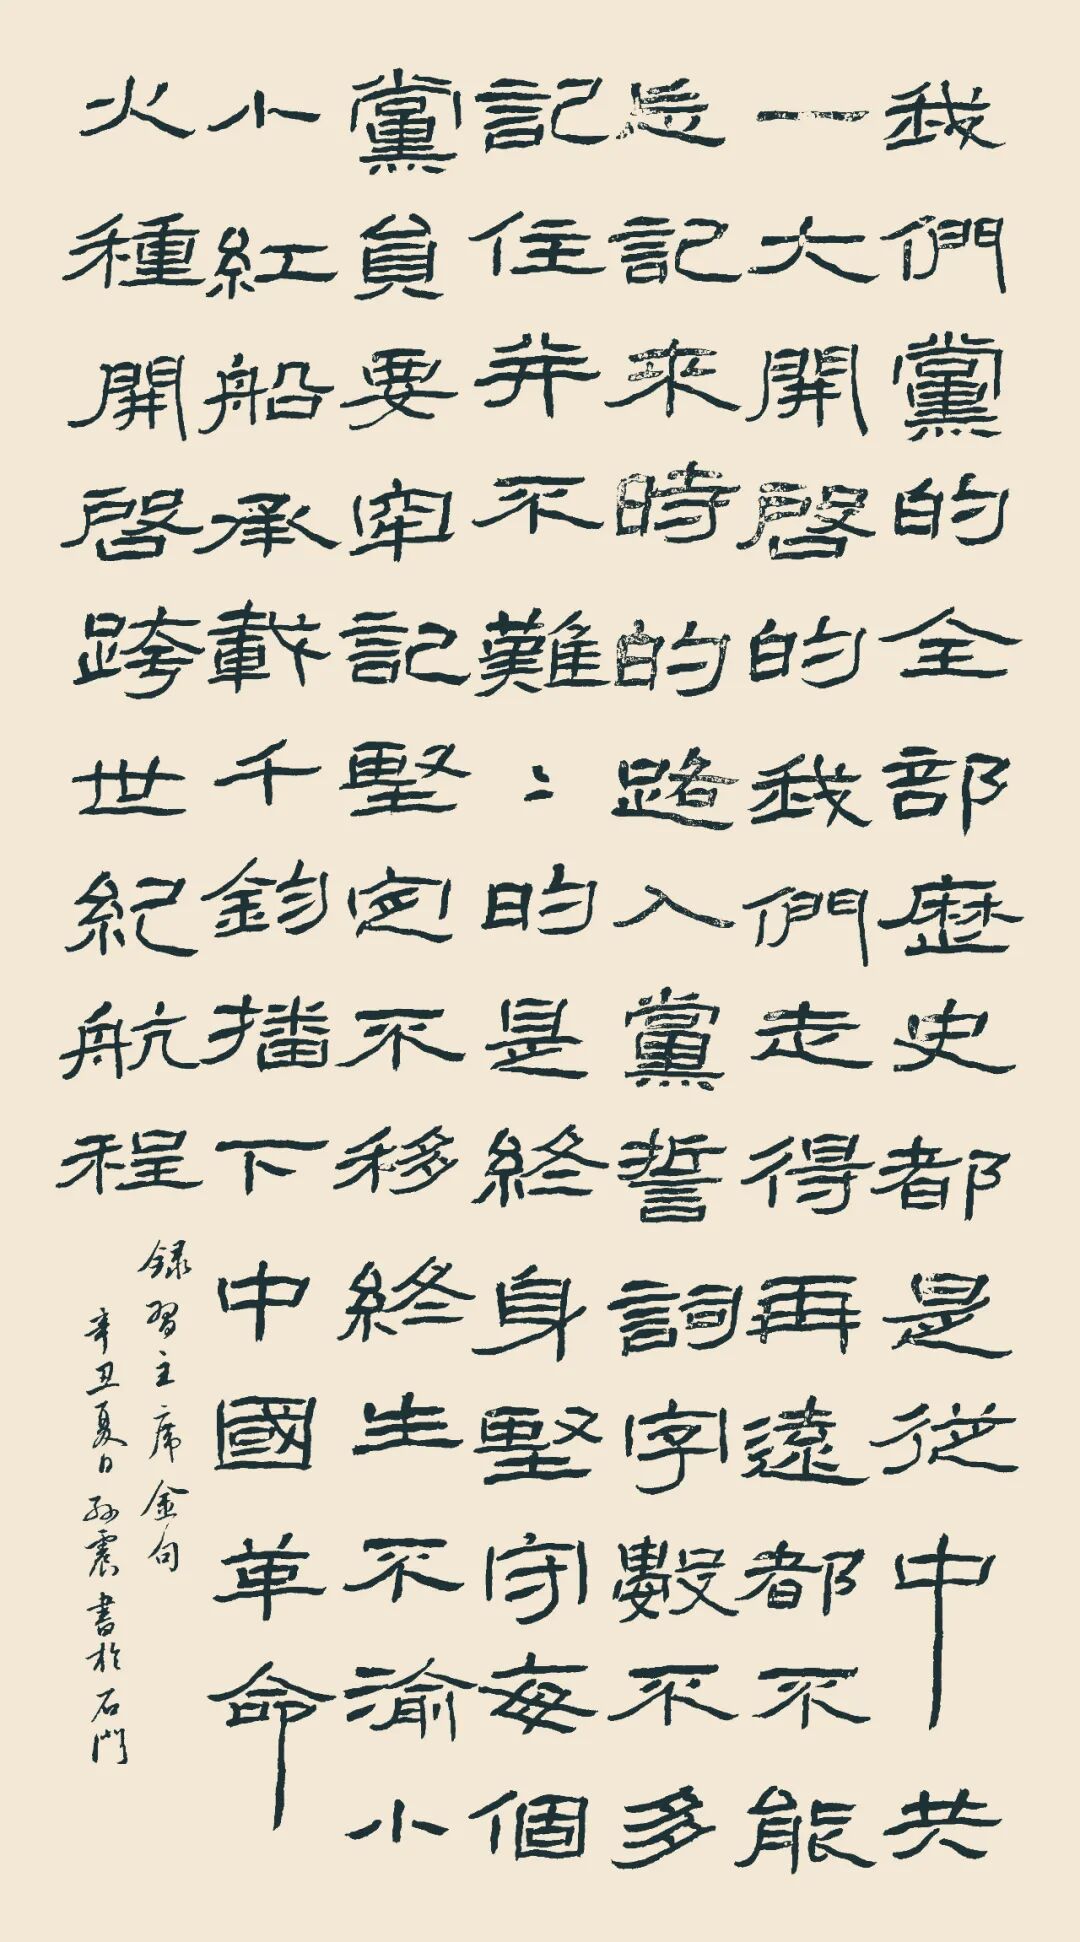 我們黨的全部歷史都是從中共
一大開啓的我們走得再遠都不能
忘記來時的路入黨誓詞字數不多
記住并不難〻的是終身堅守每個
黨員要牢記堅定不移終生不渝小
小紅船承載千鈞播下中國革命
火種開啓跨世紀航程
録習主席金句
辛丑夏日孫震書於石門